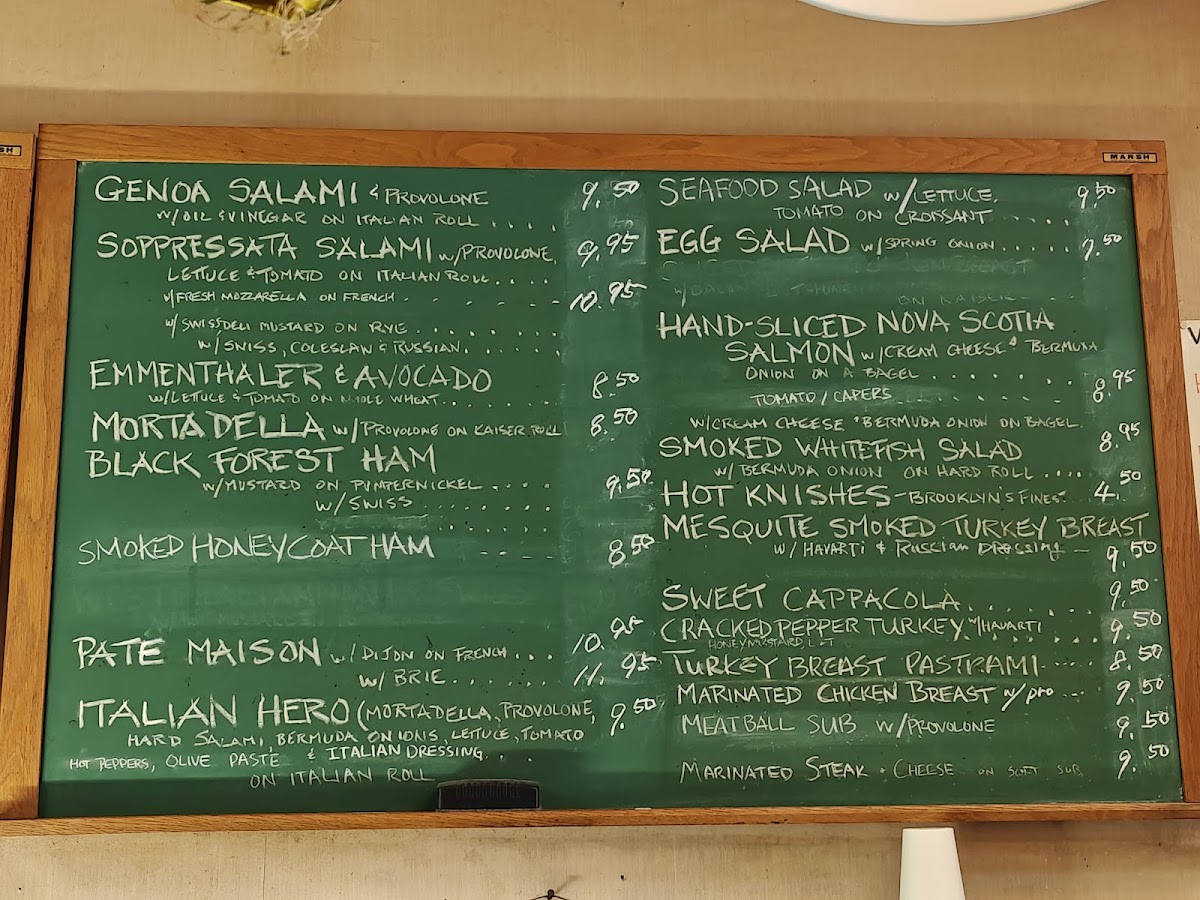 SH
MARSH
GENOA SALAMI & PROVOLONE 9.50
W/OIL & VINEGAR ON ITALIAN ROLL ....
SOPPRESSATA SALAMI W/PROVOLONE, 9.95
LETTUCE & TOMATO ON ITALIAN ROLL...
W/FRESH MOZZARELLA ON FRENCH. 10.95
W/SWISS DELI MUSTARD ON RYE.......
W/SWISS, COLESLAW & RUSSIAN......
EMMENTHALER & AVOCADO 8.50
W/LETUCE & TOMATO ON WHOLE WHEAT.......
MORTADELLA W/PROVOLONE ON KAISER ROLL 8.50
BLACK FOREST HAM
W/MUSTARD ON PUMPERNICKEL.... 9.50
W/SWISS......
SMOKED HONEY COAT HAM ---- 8.50
PATE MAISON W/DIJON ON FRENCH... 10.95
W/ BRIE....... 11.95
ITALIAN HERO (MORTADELLA, PROVOLONE, 9.50
HARD SALAMI, BERMUDA ONIONS, LETTUCE, TOMATO
HOT PEPPERS, OLIVE PASTE & ITALIAN DRESSING....
ON ITALIAN ROLL
SEAFOOD SALAD W/LETTUCE, 9.50
TOMATO ON CROISSANT .....
EGG SALAD W/SPRING ONION..... 9.50
ON KAISER
HAND-SLICED NOVA SCOTIA
SALMON W/CREAM CHEESE & BERMUDA
ONION ON A BAGEL........ 8.95
TOMATO/CAPERS
W/CREAM CHEESE & BERMUDA ONION ON BAGEL.
SMOKED WHITEFISH SALAD 8.95
W/ BERMUDA ONION ON HARD ROLL....
HOT KNISHES-BROOKLYN'S FINEST 4.50
MESQUITE SMOKED TURKEY BREAST
W/ HAVARTI & RUSSIAN DRESSING - 9.50
SWEET CAPPACOLA....... 9.50
CRACKED PEPPER TURKEY W/HAVARTI 9.50
HONEY MUSTARD L&T
TURKEY BREAST PASTRAMI.... 8.50
MARINATED CHICKEN BREAST W/PRO --- 9.50
MEATBALL SUB W/PROVOLONE 9.50
MARINATED STEAK & CHEESE ON SOFT SUB 9.50